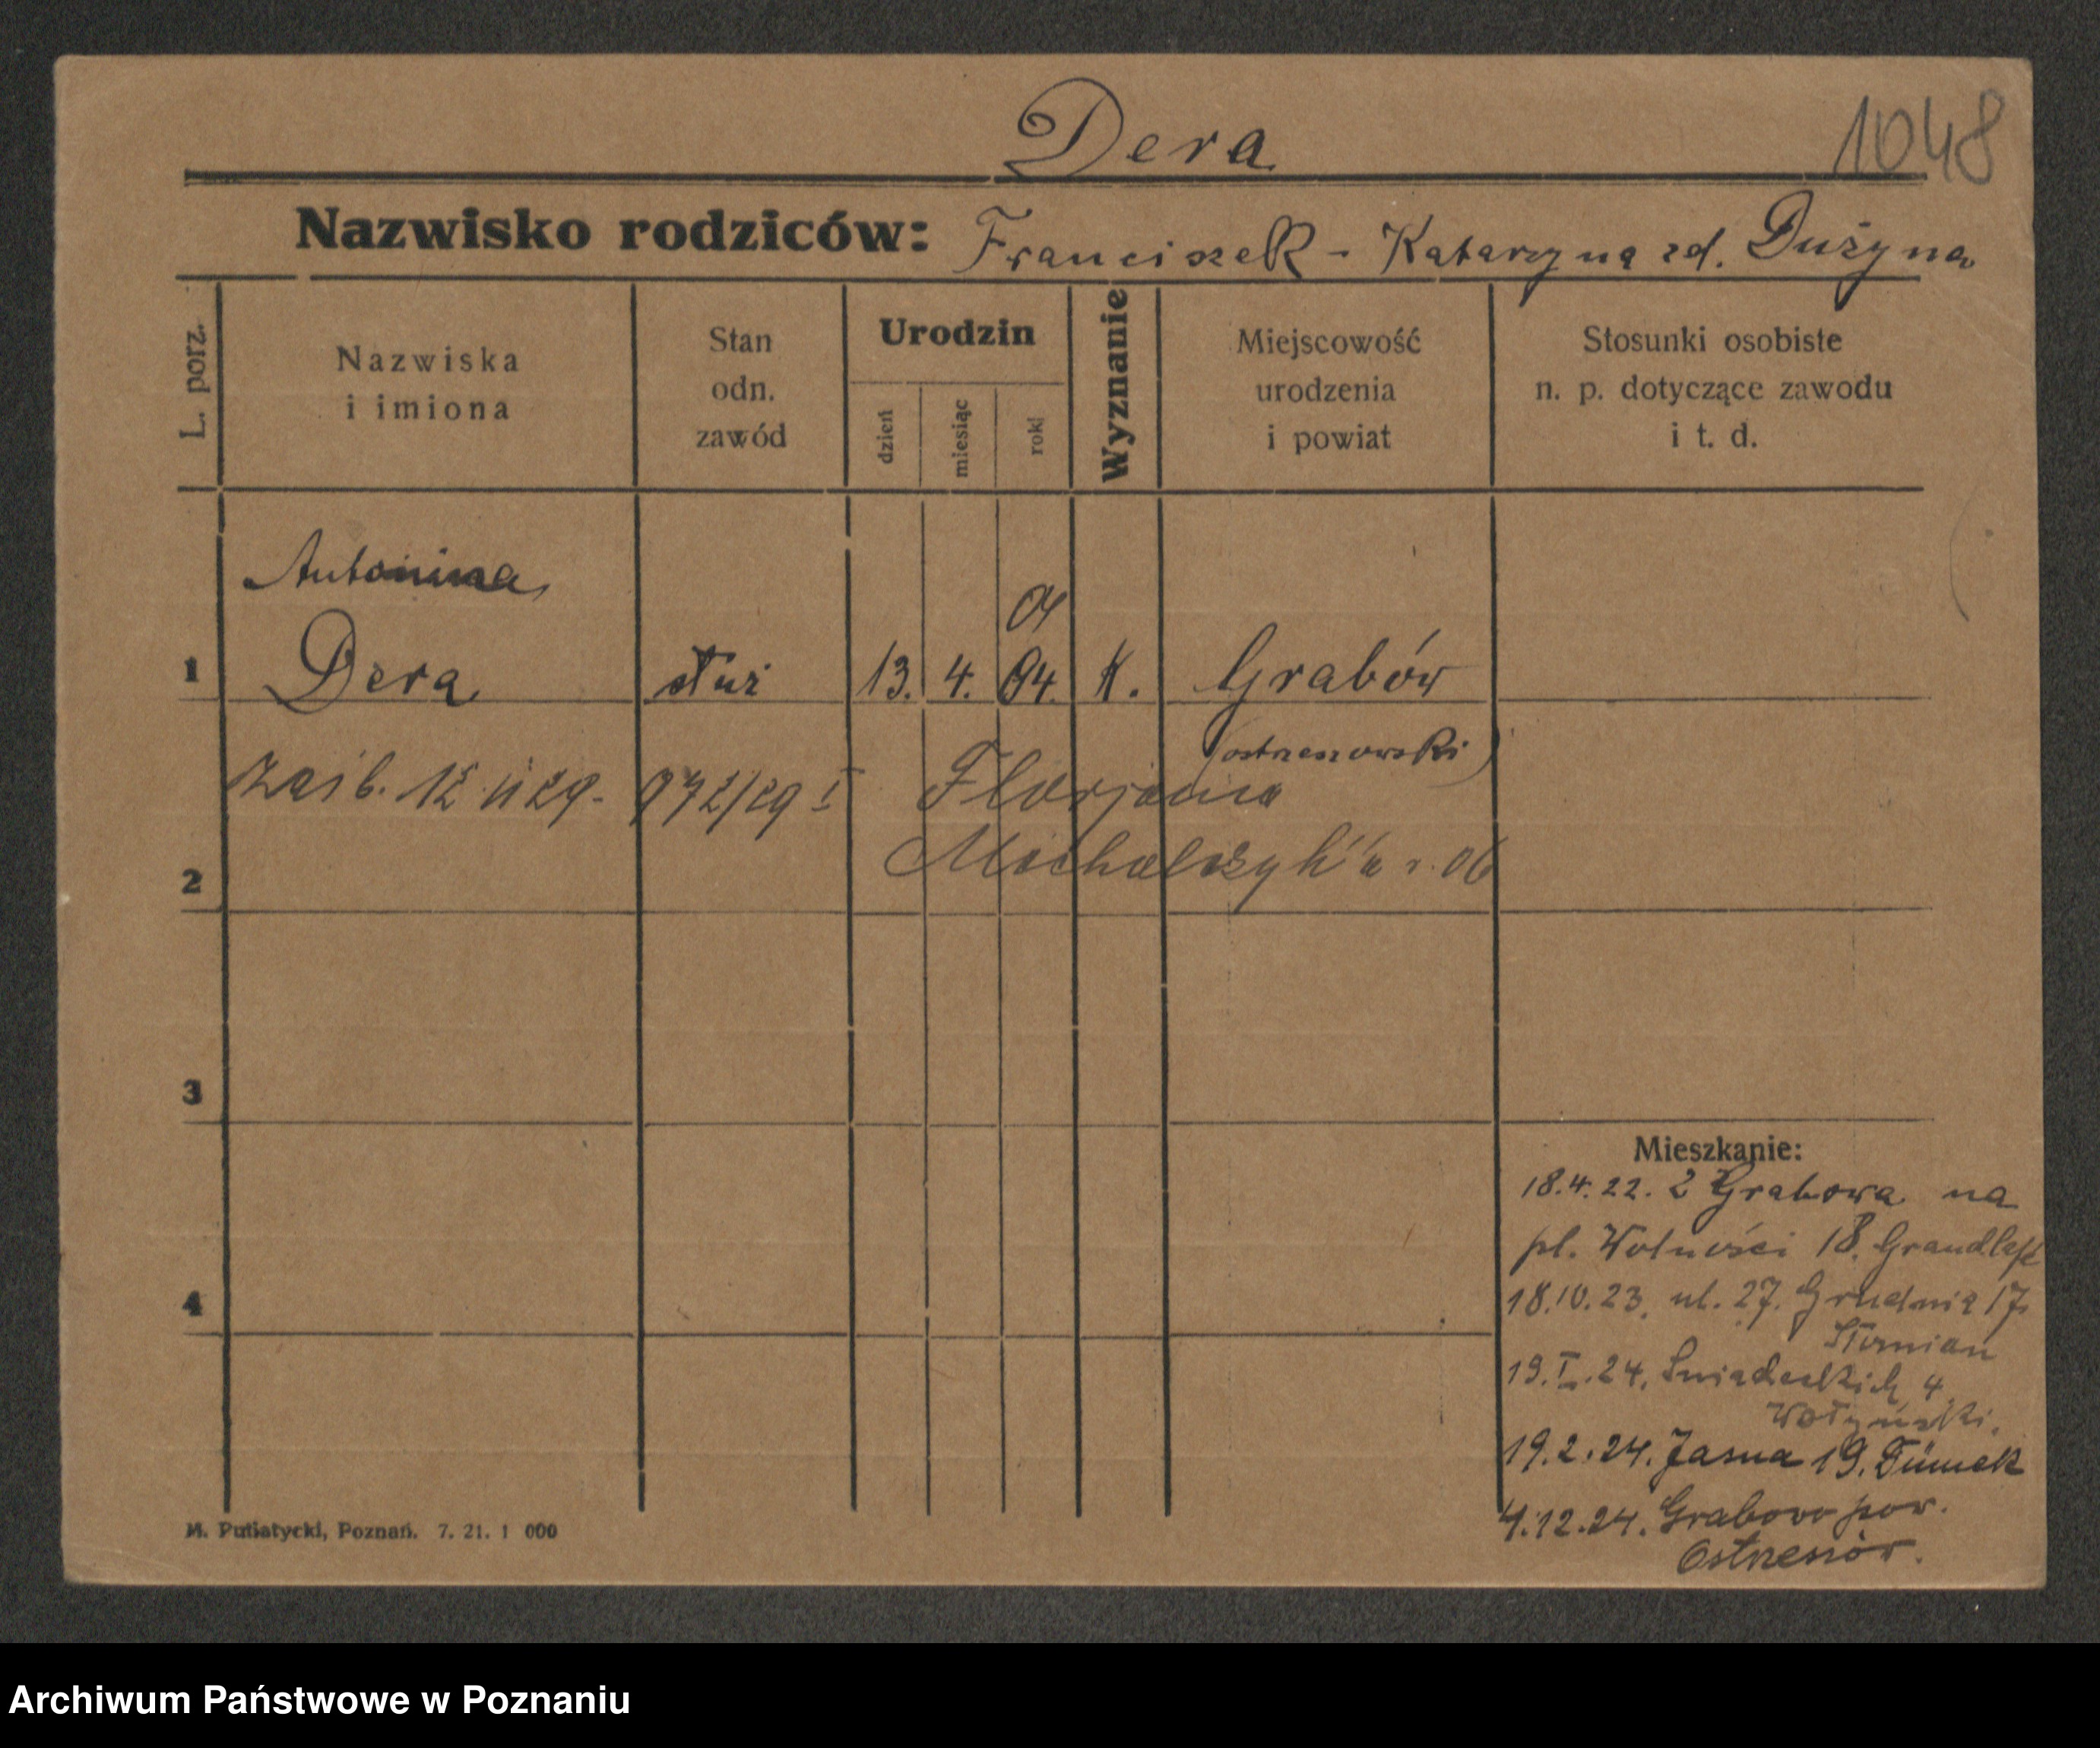 Dera
1048
Nazwisko rodziców: Franciszek - Katarzyna zd. Dużyna
L. porz.
Nazwiska
i imiona
Stan
odn.
zawód
Urodzin
dzień
miesiąc
rok
Wyznanie
Miejscowość
urodzenia
i powiat
Stosunki osobiste
n. p. dotyczące zawodu
i t. d.
Antonina
04
1 Dera służ 13. 4. 04. K. Grabów
(ostrzeszowski)
zaśl. 12 11 29. 972/29 I Florjana
2 Michalczyk'a r. 06
3
4
Mieszkanie:
18.4.22. z Grabowa na
pl. Wolności 18.
18.10.23. ul. 27. Grudnia 17.
19.I.24. Śniadeckich 4.
Wołyński.
19.2.24. Jasna 19.
4.12.24. Grabowo pow.
Ostrzeszów.
M. Putiatycki, Poznań. 7. 21. 1 000
Archiwum Państwowe w Poznaniu